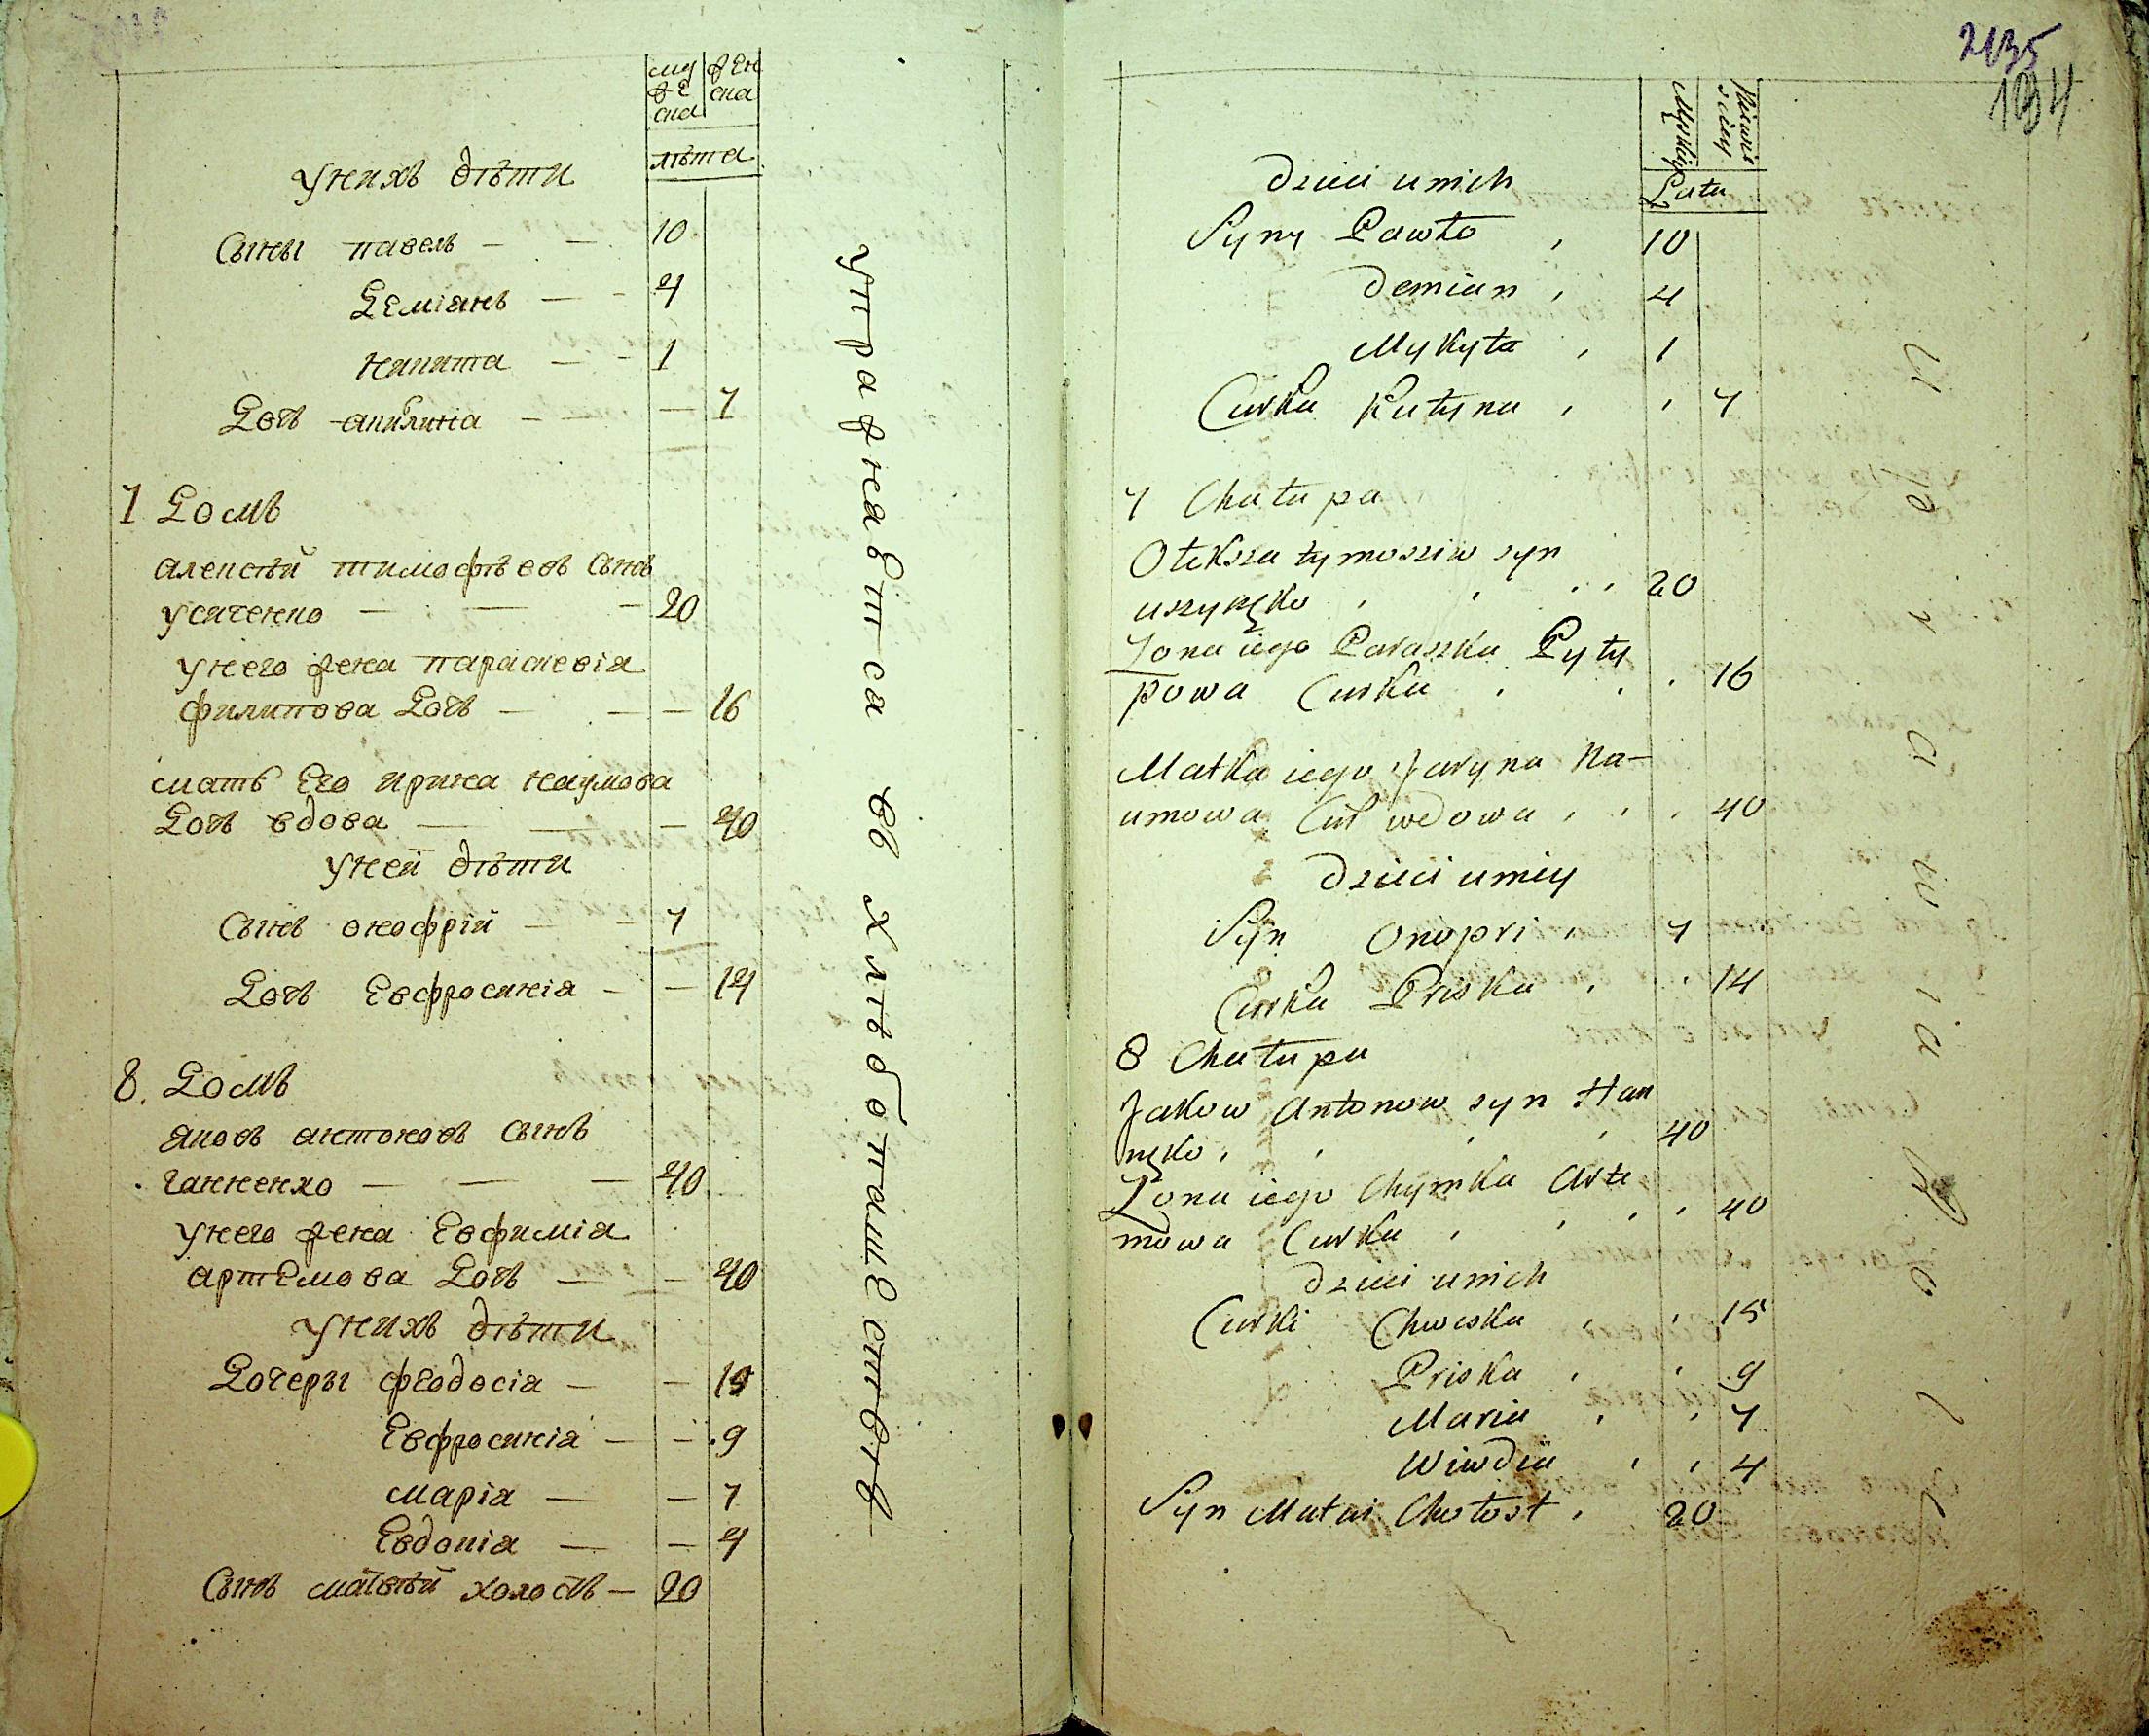 муже
ска
жен
ска
лѣта
у нихъ дѣти
Сыны павелъ — — 10
Деміянъ — - 4
никита — - 1
Дочь акилина — - — 7
7 Домъ
алексѣй тимофѣевъ сынъ
усиченко — — — 20
у него жена параскевія
филипова Дочь — — — 16
мать Его ирина наумова
Дочь вдова — — — 40
у ней дѣти
Сынъ онофрій — - 7
Дочь Евфросинія - — 14
8. Домъ
яковъ антоновъ сынъ
ганненко — — — 40
у него жена Евфимія
артемова Дочь — — 40
у нихъ дѣти
Дочеры феодосія — — 15
Евфросинія — — 9
марія — — 7
Евдокія — — 4
Сынъ матвѣй холостъ — 20
упражнавтса въ хлѣбопашествѣ
2135
194
Męskiey
Lata
Dzieci u nich
Syny Pawło 10
Demian 4
Mykyta 1
Curka Kułyna 7
7 Chałupa
Ołeksza tymosziw syn
uszyczko 20
Żona iego Paraszka Pyły
powa Curka 16
Matka iego Jaryna Na-
umowa Cur wdowa 40
Dzieci u niey
Syn Onopri 7
Curka Priska 14
8 Chałupa
Jakow Antonow syn Han
nzko 40
Żona iego Chymka Arte
mowa Curka 40
Dzieci u nich
Curki Chweska 15
Priska 9
Maria 7
Wiwdia 4
Syn Matwi Chołost 20